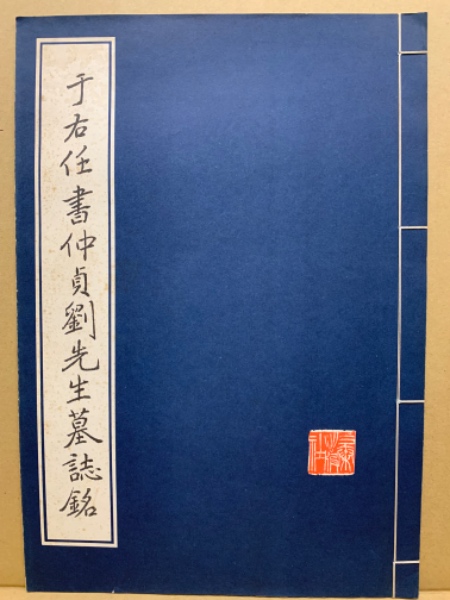 于右任書仲貞劉先生墓誌銘